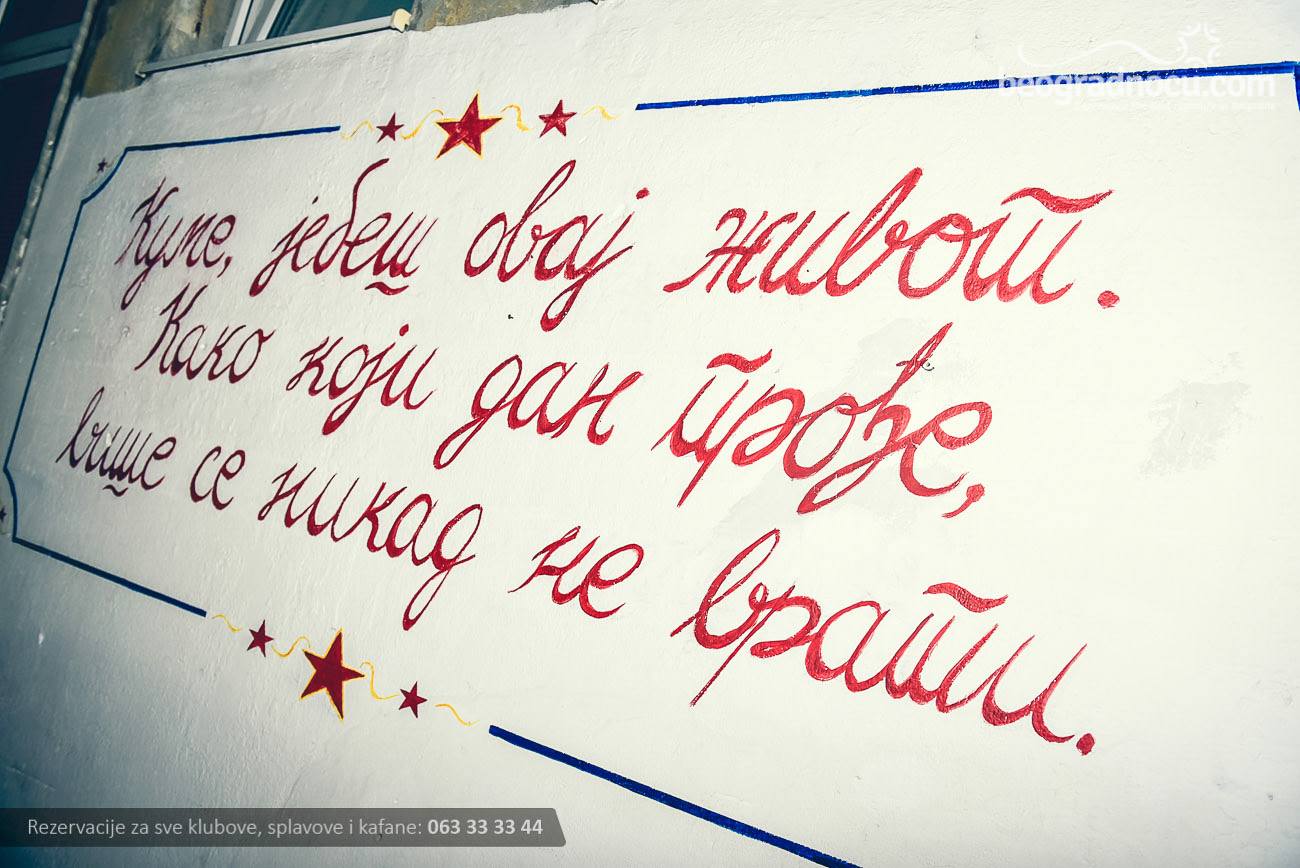 beogradnocu.com
Куме, јебеш овај живот.
Како који дан прође,
више се никад не врати.
Rezervacije za sve klubove, splavove i kafane: 063 33 33 44